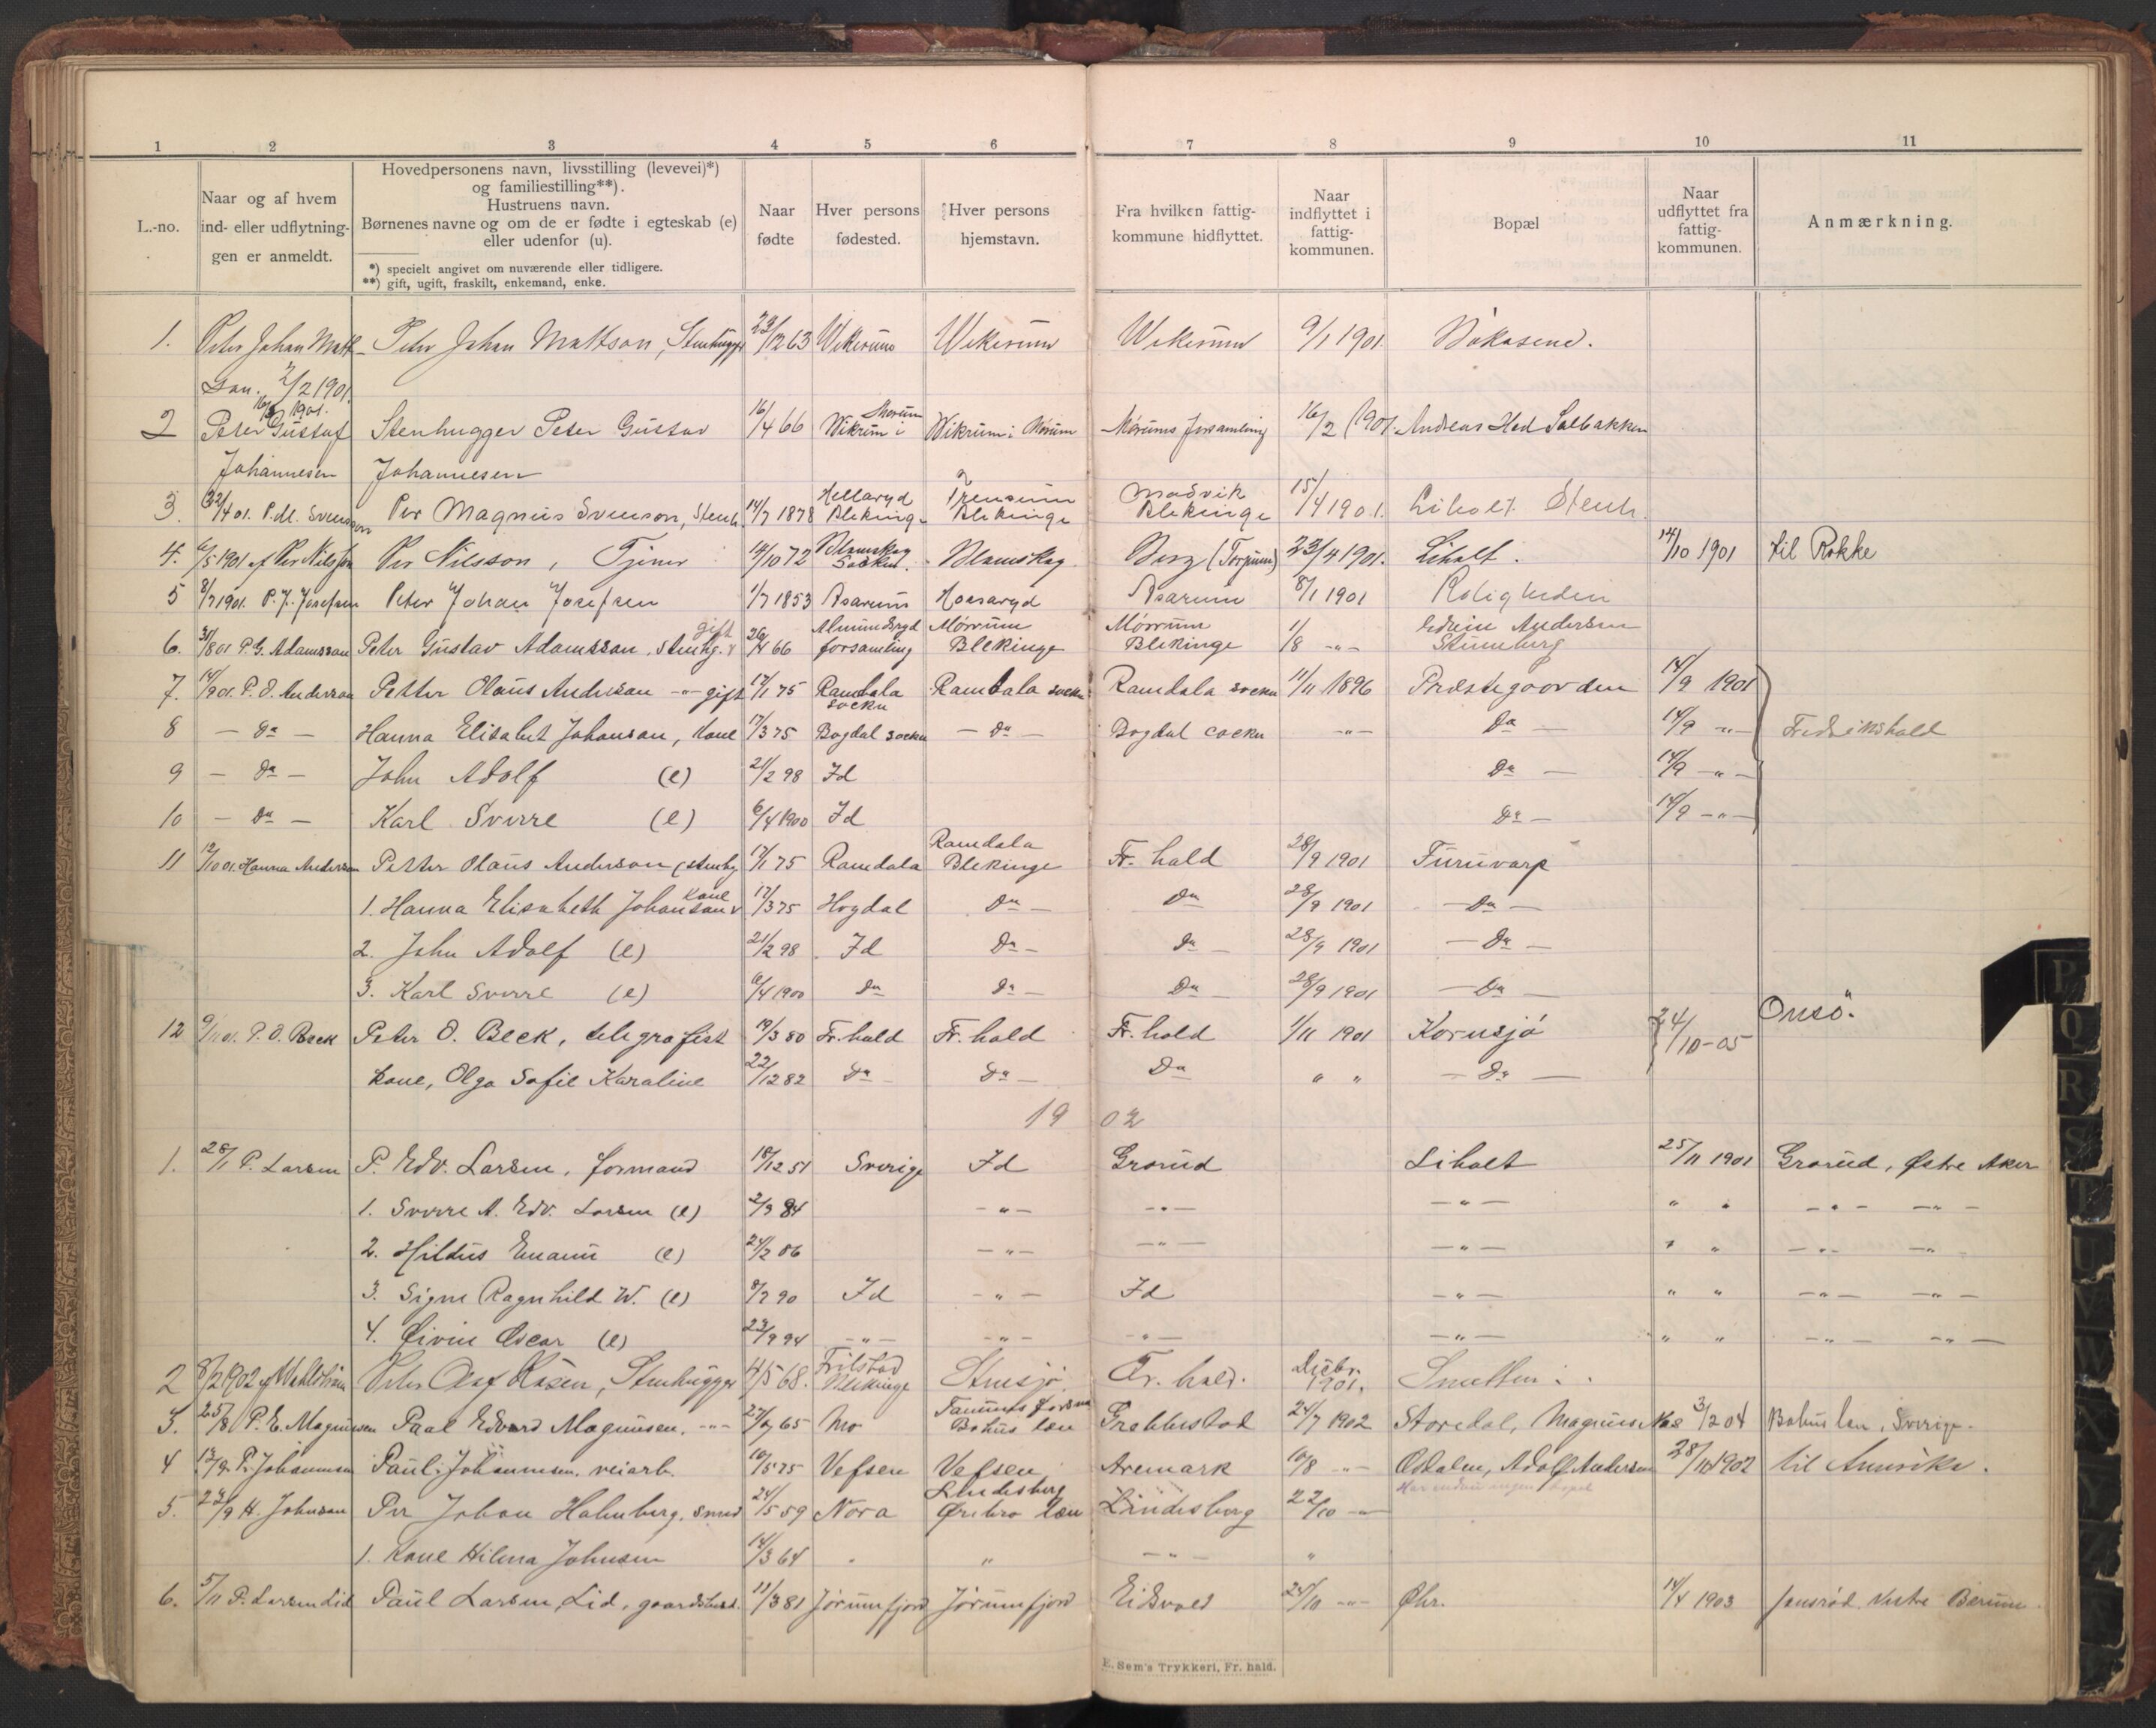 1 2 3 4 5 6 7 8 9 10 11
L.-no.
Naar og af hvem
ind- eller udflytnin-
gen er anmeldt.
Hovedpersonens navn, livsstilling (levevei)*)
og familiestilling**).
Hustruens navn.
Børnenes navne og om de er fødte i egteskab (e)
eller udenfor (u).
*) specielt angivet om nuværende eller tidligere.
**) gift, ugift, fraskilt, enkemand, enke.
Naar
fødte
Hver persons
fødested.
Hver persons
hjemstavn.
Fra hvilken fattig-
kommune hidflyttet.
Naar
indflyttet i
fattig-
kommunen.
Bopæl
Naar
udflyttet fra
fattig-
kommunen.
Anmærkning.
1. Peter Johan Matt- Peter Johan Mattson, Stenhugger 29/12 63 Wekerum Wekerum Wekerum 9/1 1901 Bökasend.
son. 2/2 1901.
16/2 1901. Mörum
2 Peter Gustaf Stenhugger Peter Gustav 16/4 66 Wikrum i Wikrum i Mörum Mörums forsamling 16/2 1901. Andreas Hed Solbakken
Johannesen Johannesen
Hellaryd Trensum Madvik
3. 22/4 01. P.M. Svenson Per Magnus Svenson, Stenh. 14/7 1878 Blekinge Blekinge Blekinge 15/4 1901. Liholt Stenh.
Blomskog
4. 6/5 1901 af Per Nilsson Per Nilsson, Tjener 14/10 72 Socken. Blomskog Berg (Torpum) 23/4 1901. Liholt. 14/10 1901 til Rokke
5 8/7 1901. P.J. Josefsen Peter Johan Josefsen 1/7 1853 Asarum Hoasaryd Asarum 8/1 1901 Roligheden
gift Almundsryd Mörrum Mörrum Edvin Andersen
6. 31/8 01 P.G. Adamsson Peter Gustav Adamsson, stenhg. 26/4 66 forsamling Blekinge Blekinge 1/8 -"- Stumberg
7. 14/9 01. P.O. Anderson Petter Olaus Anderson -"- gift 17/1 75 Ramdala Ramdala socken Ramdala socken 11/11 1896 Præstegaarden 14/9 1901
socken
8 - Do - Hanna Elisabet Johanson, Kone 17/3 75 Bogdal socken - Do - Bogdal socken -"- Do - 14/9 -"- Fredrikshald
9 - Do - John Adolf (e) 21/2 98 Id Do - 14/9 -"-
10 - Do - Karl Sverre (e) 6/4 1900 Id Do - 14/9 -"-
Ramdala
11 12/10 01. Hanna Anderson Petter Olaus Anderson (stenhg 17/1 75 Ramdala Blekinge Fr. hald 28/9 1901 Furuvarp
Kone
1. Hanna Elisabeth Johanson 17/3 75 Hogdal Do - Do 28/9 1901 - Do -
2. John Adolf (e) 21/2 98 Id Do - Do - 28/9 1901 - Do -
3. Karl Sverre (e) 6/4 1900 Do Do - Do - 28/9 1901 - Do -
12 9/11 01. P.O. Beck Peter O. Beck, telegrafist 19/3 80 Fr. hald Fr. hald Fr. hald 1/11 1901 Kornsjö 24/10-05 Onsö.
Kone, Olga Sofie Karoline 22/12 82 Do - Do - Do " " - Do -
19 02
1. 28/1 P. Larsen P. Edv. Larsen, formand 18/12 51 Sverige Id Grorud Liholt 25/11 1901 Grorud, Østre Aker
1. Sverre A. Edv. Larsen (e) 2/9 84 -"- -"- -"- " " -"- -"-
2. Hildus Emanu (e) 24/2 86 -"- -"- -"- " " -"- -"-
3. Signe Ragnhild W. (e) 8/2 90 Id -"- Id -"- " " -"- -"-
4. Øivin Oscar (e) 23/9 94 -"- -"- -"- -"- " " -"- -"-
Decbr.
2 8/2 1902 af Wahlström Peter Olaf Rosen, Stenhugger 4/5 68. Blekinge Stensjö. Fr. hald. 1901. Smutten.
3. 25/8 P.E. Magnusen Paal Edvard Magnusen, -"- 65 Mo Bohus len Grebbestad 24/7 1902 Storedal, Magnus 3/2 04 Bohus len, Sverige.
4 13/9 P. Johannesen Paul Johannesen, veiarb. 10/5 75 Vefsen Vefsen Aremark 10/8 -"- Ødalen, Adolf Andersen 28/10 1902 til Amerika.
Lindesberg Har endnu ingen bopel
5. 22/9 H. Johnson Per Johan Holmberg, smed 24/5 59 Nora Örebro len Lindesberg 22/10 -"-
1. Kone Hilma Johnsen 14/3 64 " " -"- "
6. 5/11 P. Larsen Lid Paul Larsen Lid, gaardsbest. 11/3 81 Jörumfjord Jörumfjord Eidsvold 24/10 -"- Øhr. 14/4 1903 Jensrød Vestre Bærum.
E. Sem's Trykkeri, Fr. hald.
P
Q
R
S
T
U
V